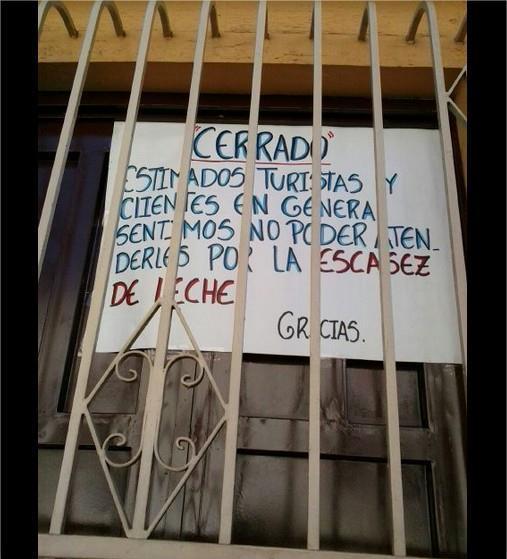 "CERRADO"
ESTIMADOS TURISTAS Y
CLIENTES EN GENERAL
SENTIMOS NO PODER ATEN-
DERLES POR LA ESCASEZ
DE LECHE
GRACIAS.